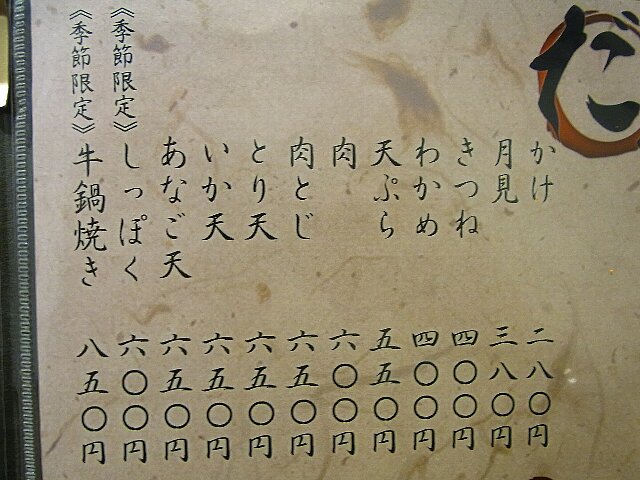 だ
かけ 二八〇円
月見 三八〇円
きつね 四〇〇円
わかめ 四〇〇円
天ぷら 五五〇円
肉 六〇〇円
肉とじ 六五〇円
とり天 六五〇円
いか天 六五〇円
あなご天 六五〇円
《季節限定》しっぽく 六〇〇円
《季節限定》牛鍋焼き 八五〇円